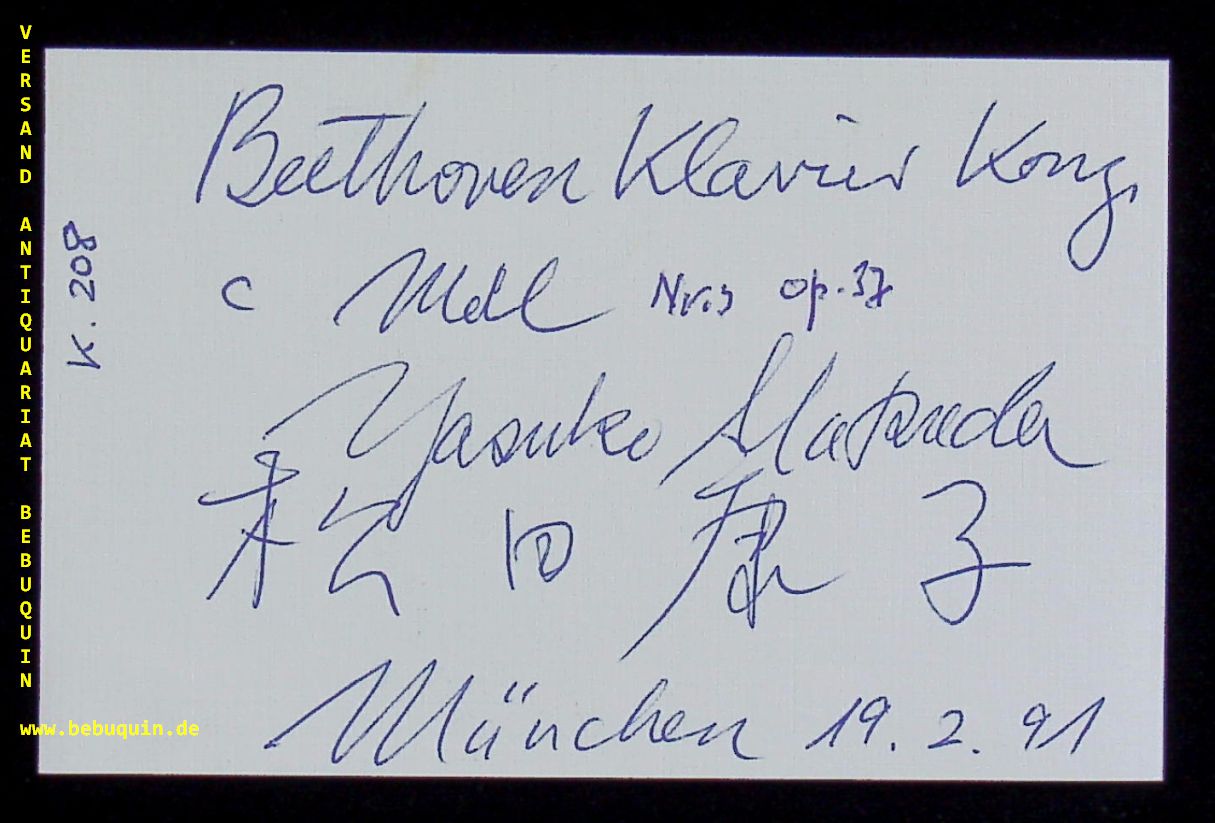 VERSAND ANTIQUARIAT BEBUQUIN
www.bebuquin.de
K. 208
Beethoven Klavier Konz.
c Moll Nr.3 op.37
Yasuko Matsuda
松田康子
München 19.2.91